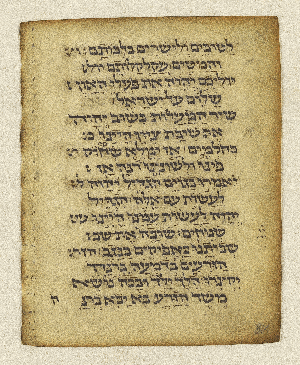 לטובים ולישרים בלבותם
והמטים עקלקלותם
יוליכם יהוה את פעלי האון
שלום על ישראל
שיר המעלות בשוב יהוה
את שיבת ציון היינו
כחלמים אז ימלא שחוק
פינו ולשוננו רנה אז
יאמרו בגוים הגדיל יהוה
לעשות עם אלה הגדיל
יהוה לעשות עמנו היינו
שמחים שובה את
שביתנו כאפיקים בנגב
הזרעים בדמעה ברנה
ילך ובכה נשא
משך הזרע בא יבא